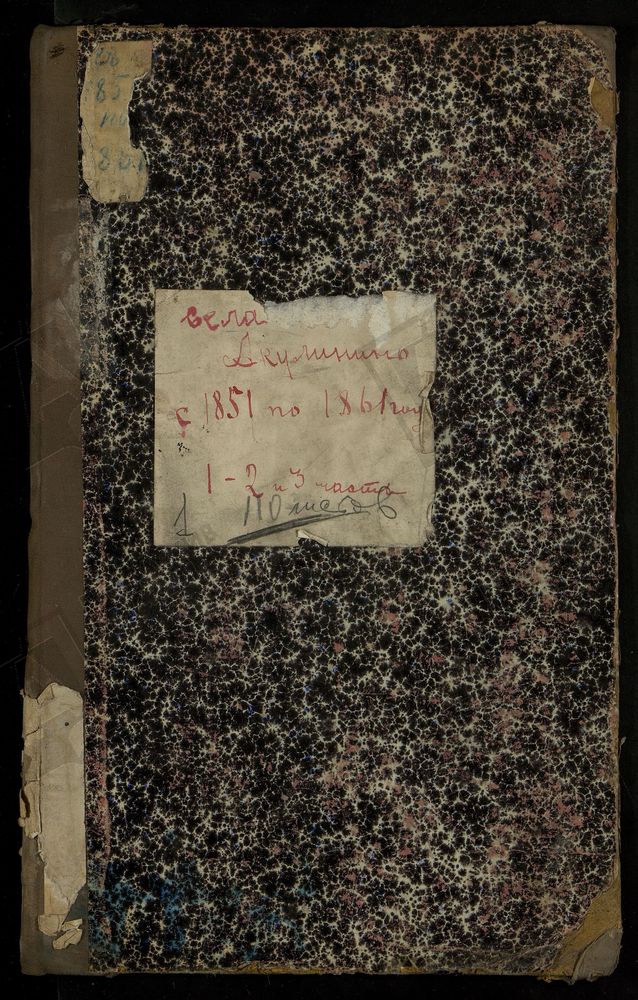 85
80
села
Акулинино
с 1851 по 1861 год
1-2 и 3 часть
1 110 листов